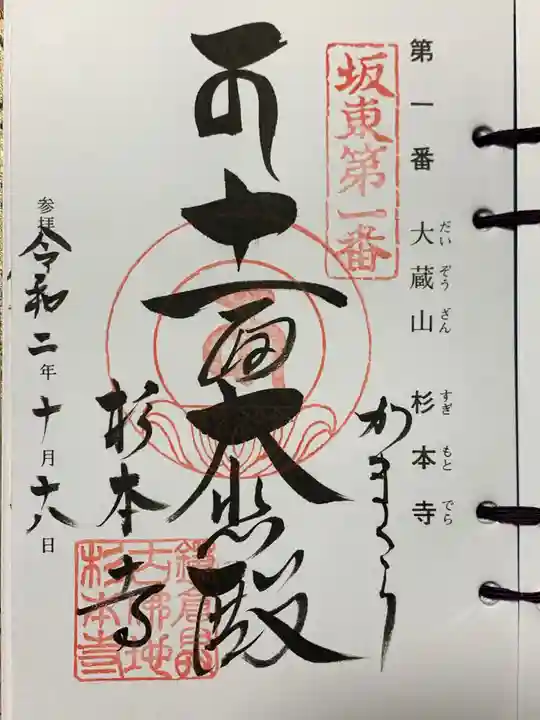 第一番 大蔵山 杉本寺
だい ぞう ざん すぎ もと でら
坂東第一番
かまくら
十一面大悲殿
杉本寺
参拝 令和二年十月十八日